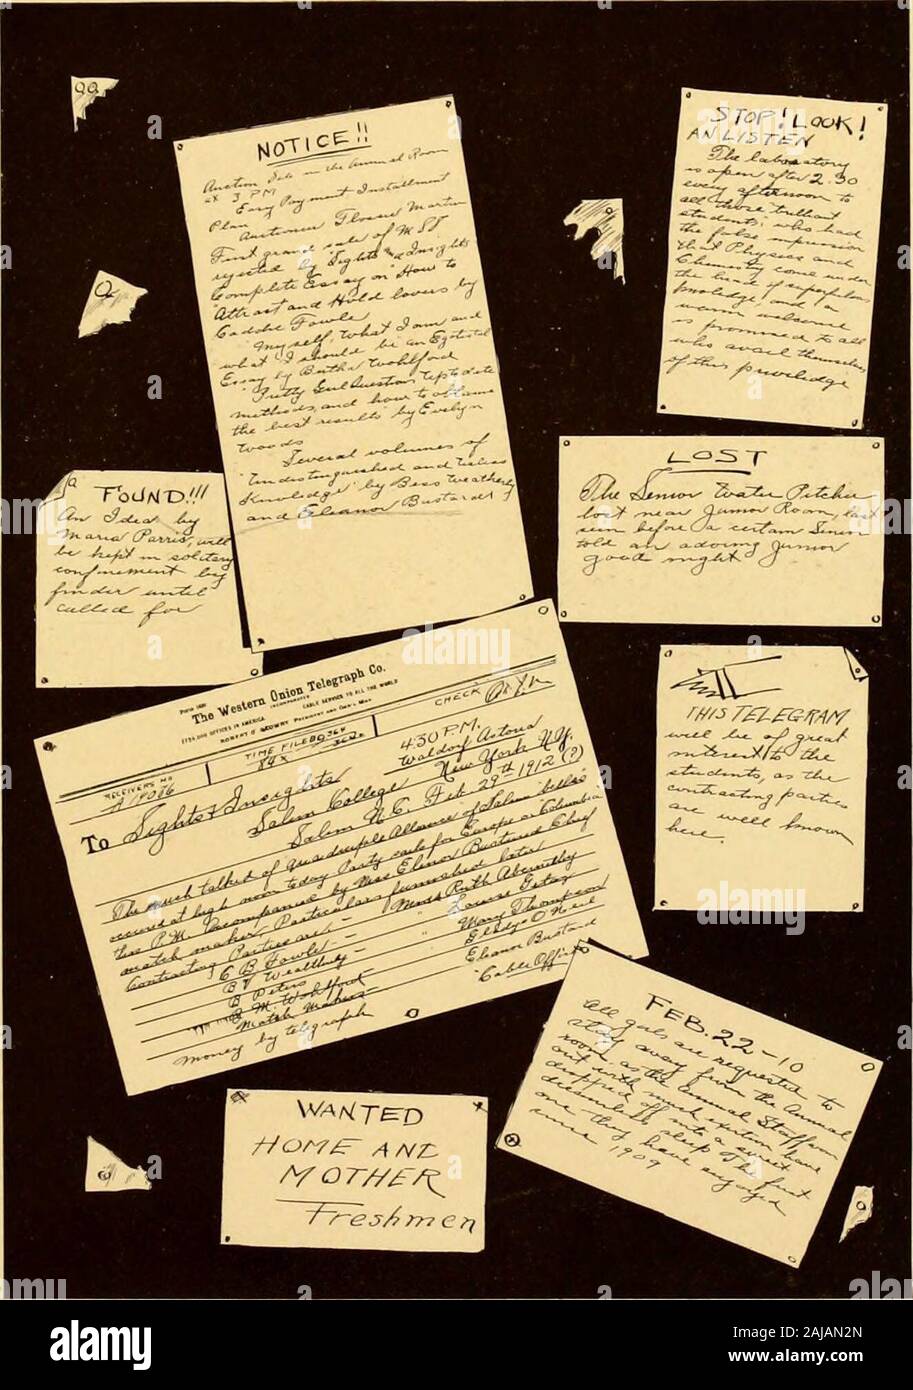 NOTICE!!
Auction Sale in the Annual Room
at 3 PM
Easy Payment Installment
Plan
Auctioneer Flossie Martin
First grand sale of MSS
rejected by "Sights and Insights
Complete Essay on "How to
Attract and Hold lovers by
Caddie Fowle
"Myself, What I am and
what I should be" an Egotistical
Essay by Bertha Wohlford
"Pretty Girl Question Up to date
methods, and how to obtain
the best results" by Evelyn
Woods
Several volumes of
"Undistinguished and Useless
Knowledge" by Bess Weatherly
and Eleanor Bustard
STOP! LOOK!
AN LISTEN
The laboratory
is open after 2.30
every afternoon to
all those "brilliant
students," who had
the false impression
that Physics and
Chemistry come under
the head of superfulous
knowledge, and a
warm welcome
is promised to all
who avail themselves
of this priviledge
LOST
The Senior Water Pitcher
lost near Junior Room, last
seen before a certain Senior
told an adoring Junior
good night
FOUND!!!
An Idea by
Maria Parris, will
be kept in solitary
confinement by
finder until
called for
The Western Union Telegraph Co.
INCORPORATED
OFFICES IN AMERICA CABLE SERVICE TO ALL THE WORLD
RECEIVERS No
TIME FILED
CHECK
4:30 P.M.
Waldorf Astoria
New York N.Y.
Feb 29th 1912 (?)
To Sights & Insights
Salem College
Salem N.C.
The much talked of quadruple Alliance of Salem belles
occured at high noon today Party sails for Europe on Columbia
this P.M. accompanied by Miss Elinor Bustard Chief
match maker, Particulars furnished later
Contracting Parties are:-
C B Fowle - Misses Ruth Abernethy
B Weathley - " Louise Getaz
B Peters - Mary Thompson
B M. Wohlford Gladys O'Neil
Match Maker - Eleanor Bustard
Money by telegraph "Cable Office"
THIS TELEGRAM
will be of great
interest to the
students, as the
contracting parties
are well known
here.
WANTED
HOME AND
MOTHER
Freshmen
FEB. 22-10
All gals are requested to
stay away from the Annual
room as the Annual Staff
out with much exertion have
dropped off into a sweet
dreamless sleep The first
one they have enjoyed
since 1909
alamy
Image ID: 2AJAN2N
www.alamy.com